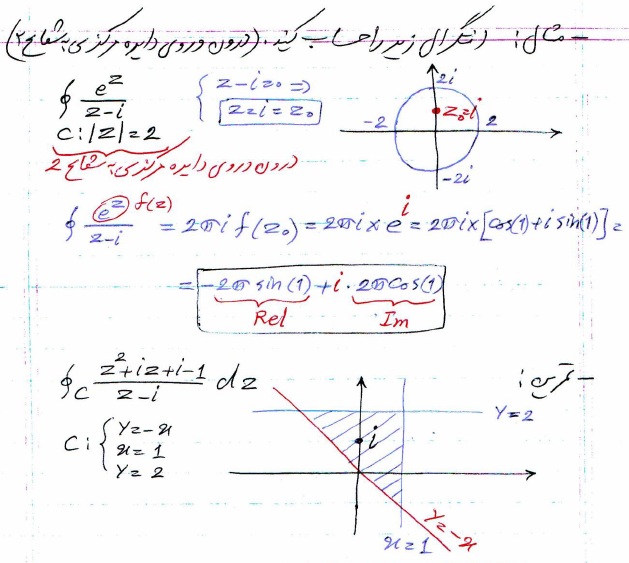 - مثال: انتگرال زیر را حساب کنید. (درون و روی دایره مرکزی به شعاع ۲)
∮ e^z / (z-i)
C: |z| = 2
درون و روی دایره مرکزی به شعاع 2
{ z-i=0 ⇒
z=i=z₀
2i
z₀=i
-2 2
-2i
∮ e^z / (z-i) f(z) = 2πi f(z₀) = 2πi × e^i = 2πi × [cos(1)+i sin(1)] =
= -2π sin(1) + i · 2π cos(1)
Rel Im
- تمرین:
∮_C (z²+iz+i-1) / (z-i) dz
C: { y=-x
x=1
y=2
y=2
i
y=-x
x=1